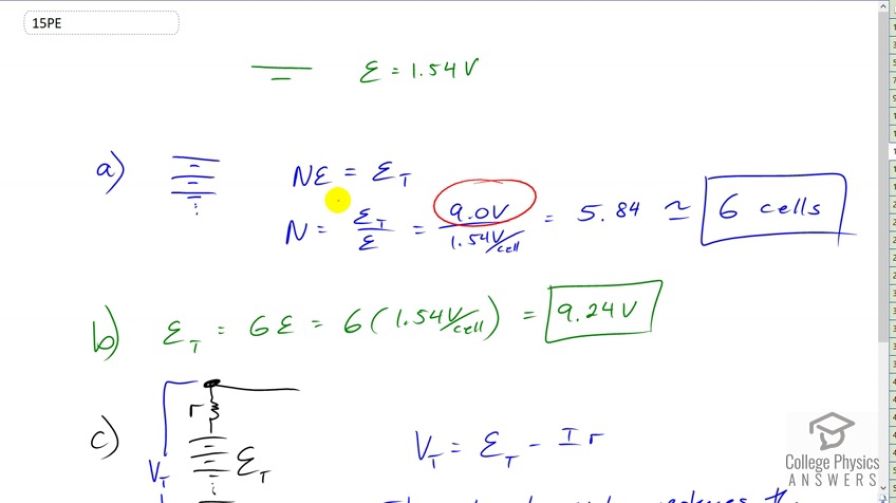 15PE
ε = 1.54 V
a) Nε = ε_T
N = ε_T/ε = 9.0V/1.54V/cell = 5.84 ≃ 6 cells
b) ε_T = 6ε = 6(1.54V/cell) = 9.24V
c) r
V_T ε_T V_T = ε_T - Ir
College Physics
ANSWERS